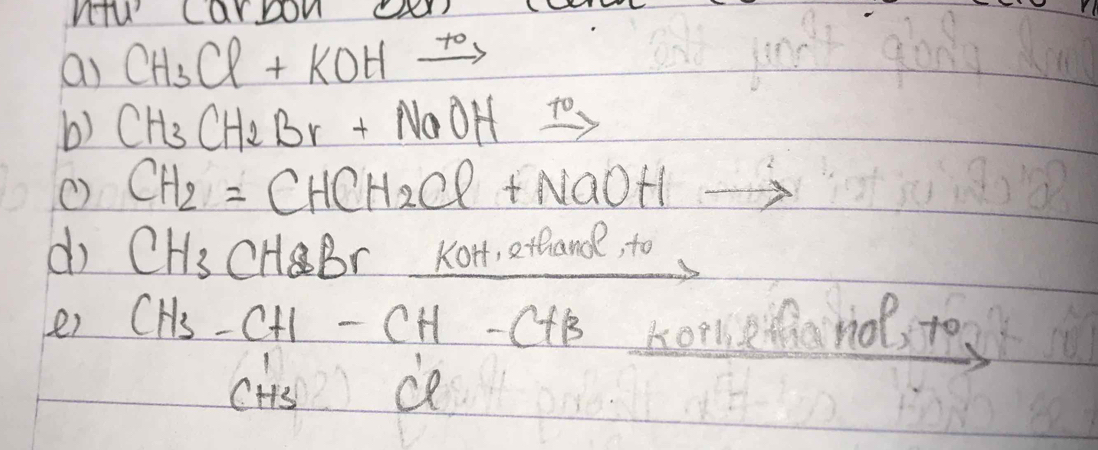 Carbon
a) CH3Cl + KOH to→
b) CH3CH2Br + NaOH to→
c) CH2 = CHCH2Cl + NaOH →
d) CH3CH2Br KOH, ethanol, to→
e) CH3 - CH - CH - CH3 KOH, ethanol, to→
CH3 Cl